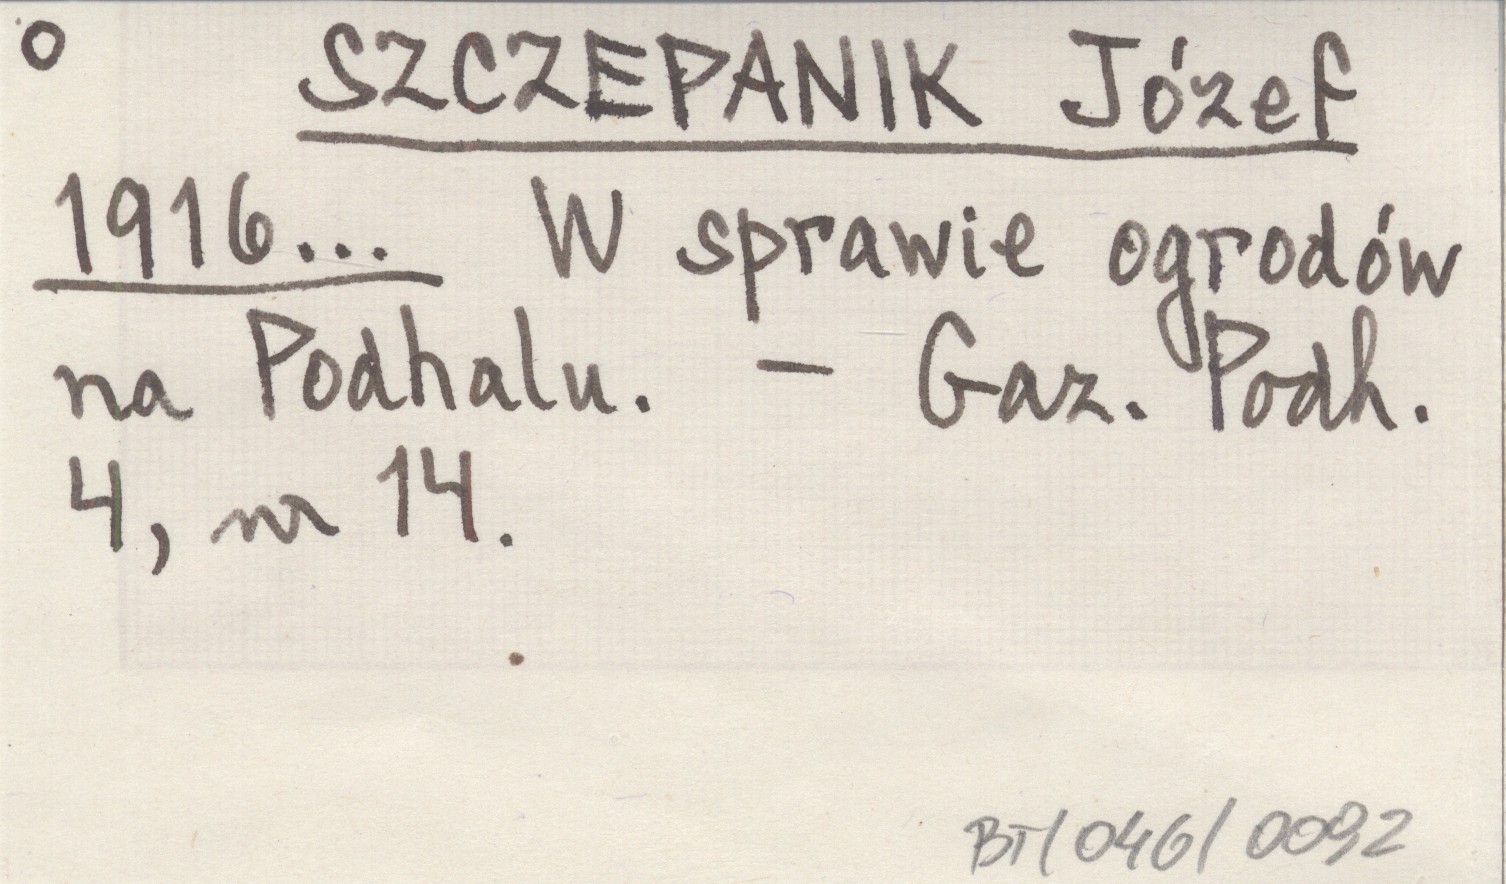 o SZCZEPANIK Józef
1916... W sprawie ogrodów
na Podhalu. - Gaz. Podh.
4, nr 14.
BT/046/0092